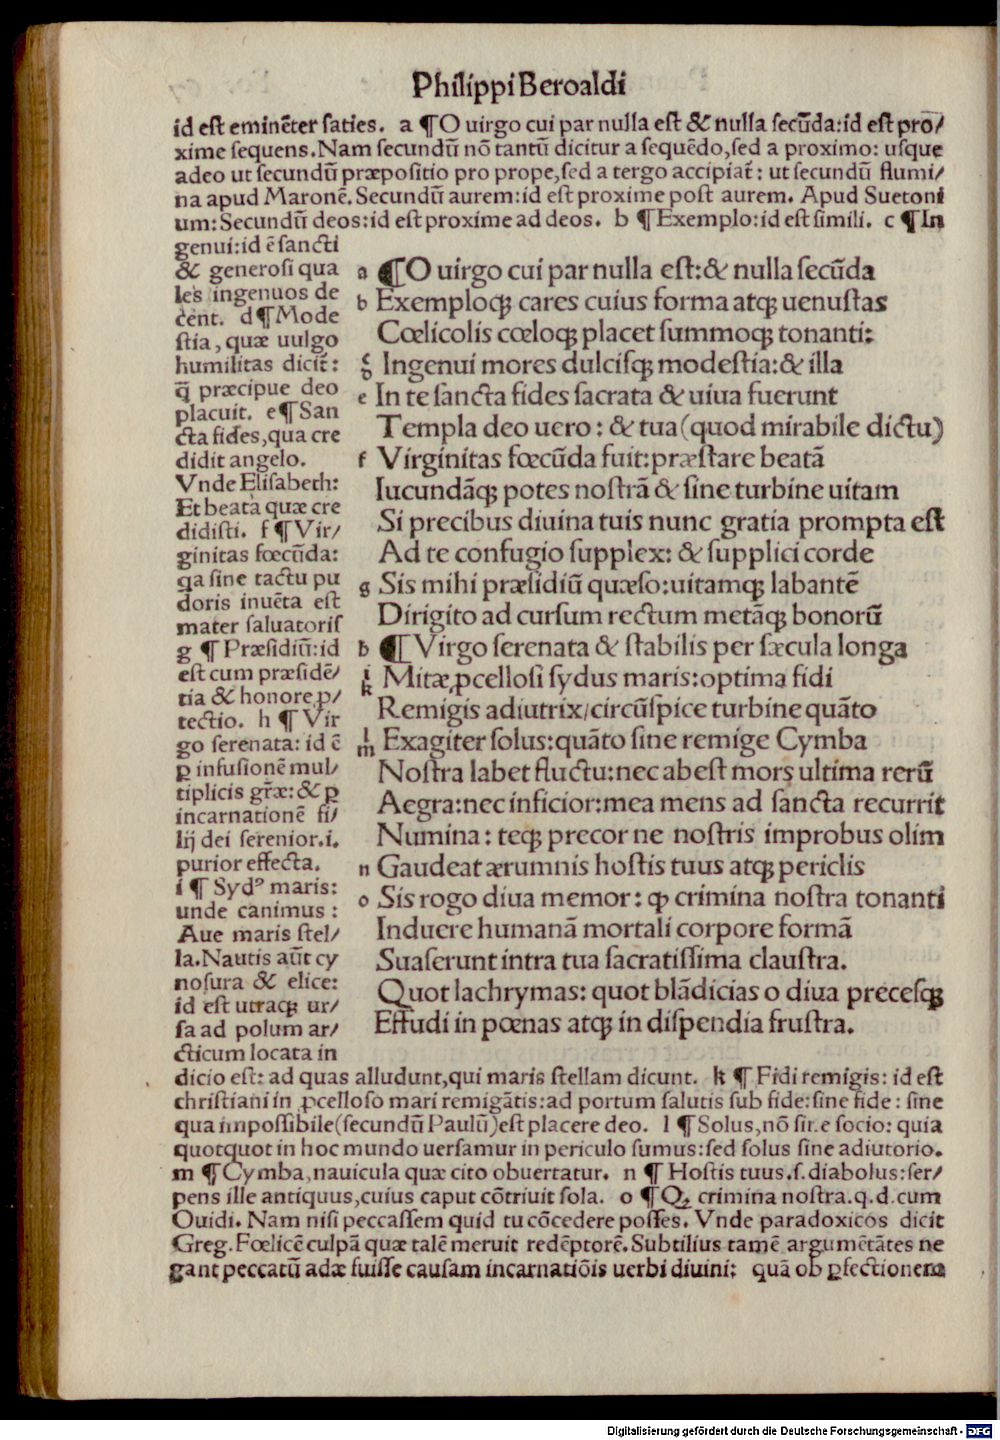 Philippi Beroaldi
id est eminēter saties. a ¶ O uirgo cui par nulla est & nulla secūda: id est pro/
xime sequens. Nam secundū nō tantū dicitur a sequēdo, sed a proximo: usque
adeo ut secundū præpositio pro prope, sed a tergo accipiat̄: ut secundū flumi/
na apud Maronē. Secundū aurem: id est proxime post aurem. Apud Suetoni
um: Secundū deos: id est proxime ad deos. b ¶ Exemplo: id est simili. c ¶ In
genui: id ē sancti
& generosi qua
les ingenuos de
cent. d ¶ Mode
stia, quæ uulgo
humilitas dicit̄:
q̄ præcipue deo
placuit. e ¶ San
cta fides, qua cre
didit angelo.
Vnde Elisabeth:
Et beata quæ cre
didisti. f ¶ Vir/
ginitas fœcūda:
qa sine tactu pu
doris inuēta est
mater saluatoris
g ¶ Præsidiū: id
est cum præsidē/
tia & honore ꝓ/
tectio. h ¶ Vir
go serenata: id ē
ꝑ infusionē mul/
tiplicis gr̄æ: & ꝑ
incarnationē fi/
lij dei serenior .i.
purior effecta.
i ¶ Sydꝰ maris:
unde canimus:
Aue maris stel/
la. Nautis aūt cy
nosura & elice:
id est utraqꝫ ur/
sa ad polum ar/
cticum locata in
a ¶ O uirgo cui par nulla est: & nulla secūda
b Exemploqꝫ cares cuius forma atqꝫ uenustas
Cœlicolis cœloqꝫ placet summoqꝫ tonanti:
c d Ingenui mores dulcisqꝫ modestia: & illa
e In te sancta fides sacrata & uiua fuerunt
Templa deo uero: & tua (quod mirabile dictu)
f Virginitas fœcūda fuit: præstare beatā
Iucundāqꝫ potes nostrā & sine turbine uitam
Si precibus diuina tuis nunc gratia prompta est
Ad te confugio supplex: & supplici corde
g Sis mihi præsidiū quæso: uitamqꝫ labantē
Dirigito ad cursum rectum metāqꝫ bonorū
h ¶ Virgo serenata & stabilis per sæcula longa
i k Mitæ, ꝓcellosi sydus maris: optima fidi
Remigis adiutrix/ circūspice turbine quāto
l m Exagiter solus: quāto sine remige Cymba
Nostra labet fluctu: nec abest mors ultima rerū
Aegra: nec inficior: mea mens ad sancta recurrit
Numina: teqꝫ precor ne nostris improbus olim
n Gaudeat ærumnis hostis tuus atqꝫ periclis
o Sis rogo diua memor: ꝙ crimina nostra tonanti
Induere humanā mortali corpore formā
Suaserunt intra tua sacratissima claustra.
Quot lachrymas: quot blādicias o diua precesqꝫ
Effudi in pœnas atqꝫ in dispendia frustra.
dicio est: ad quas alludunt, qui maris stellam dicunt. k ¶ Fidi remigis: id est
christiani in ꝓcelloso mari remigātis: ad portum salutis sub fide: sine fide: sine
qua impossibile (secundū Paulū) est placere deo. l ¶ Solus, nō sine socio: quia
quotquot in hoc mundo uersamur in periculo sumus: sed solus sine adiutorio.
m ¶ Cymba, nauicula quæ cito obuertatur. n ¶ Hostis tuus .s. diabolus: ser/
pens ille antiquus, cuius caput cōtriuit sola. o ¶ Qꝫ crimina nostra .q.d. cum
Ouidi. Nam nisi peccassem quid tu cōcedere posses. Vnde paradoxicos dicit
Greg. Fœlicē culpā quæ talē meruit redēptorē. Subtilius tamē argumētātes ne
gant peccatū adæ fuisse causam incarnatiōis uerbi diuini: quā ob ꝑfectionem
Digitalisierung gefördert durch die Deutsche Forschungsgemeinschaft - DFG